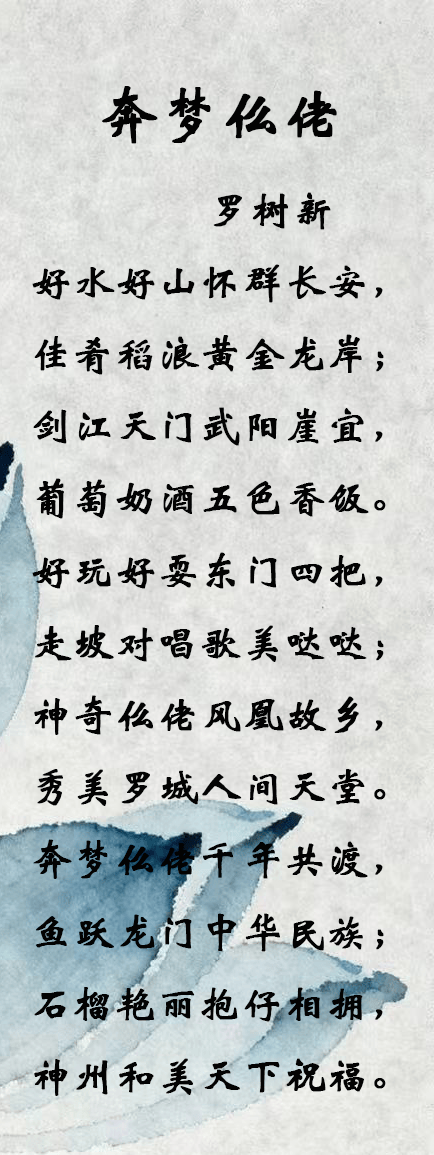 奔梦仫佬
罗树新
好水好山怀群长安，
佳肴稻浪黄金龙岸；
剑江天门武阳崖宜，
葡萄奶酒五色香饭。
好玩好耍东门四把，
走坡对唱歌美哒哒；
神奇仫佬凤凰故乡，
秀美罗城人间天堂。
奔梦仫佬千年共渡，
鱼跃龙门中华民族；
石榴艳丽抱仔相拥，
神州和美天下祝福。